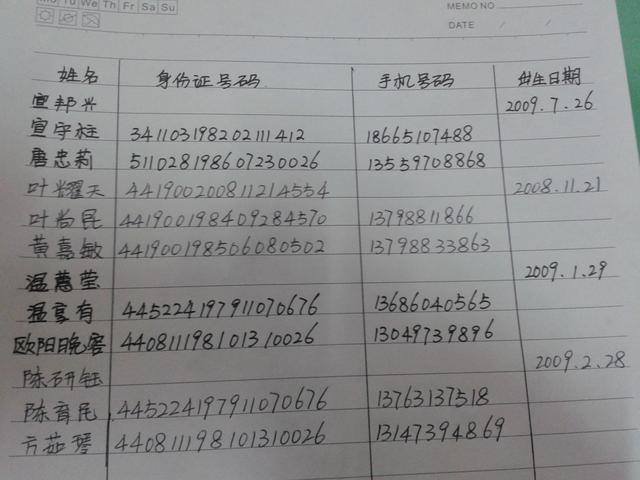 Mo Tu We Th Fr Sa Su
MEMO NO.
DATE / /
姓名 身份证号码 手机号码 出生日期
宣邦兴 2009.7.26
宣守柱 341103198202111412 18665107488
唐忠莉 511028198607230026 13559708868
叶耀天 441900200811214554 2008.11.21
叶尚民 441900198409284570 13798811866
黄嘉敏 441900198506080502 13798833863
温慧莹 2009.1.29
温夏有 445224197911070676 13686040565
欧阳晚客 440811198101310026 13049739896
陈研钰 2009.2.28
陈育民 445224197911070676 13763137518
方茹琴 440811198101310026 13147394869